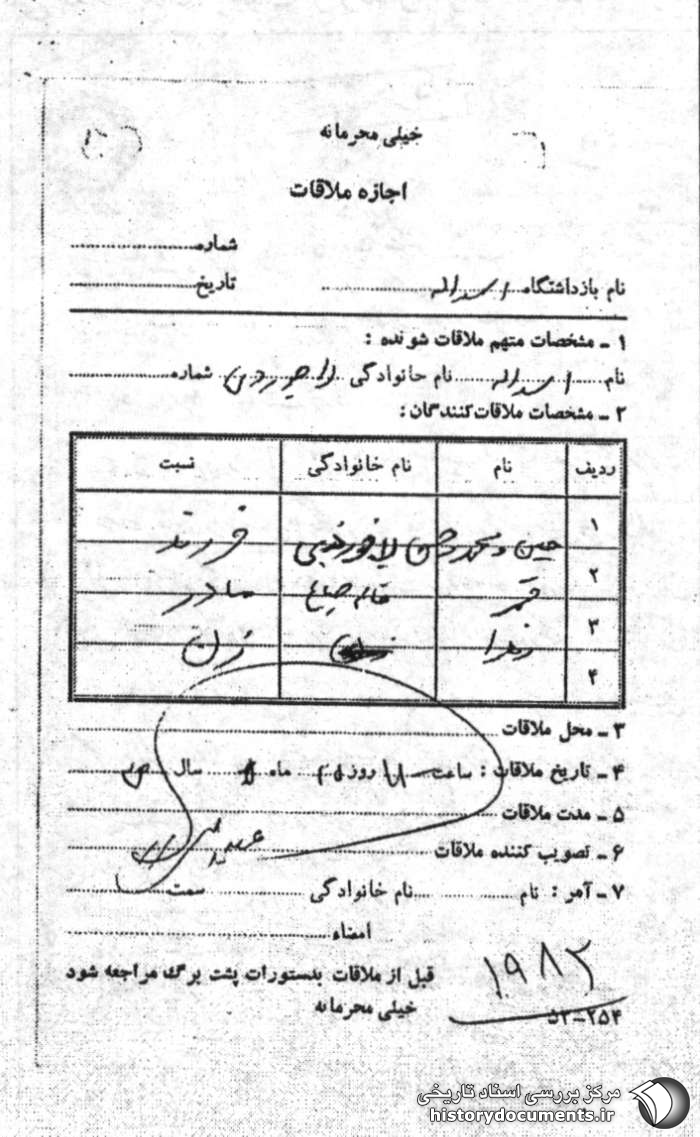 خیلی محرمانه
اجازه ملاقات
شماره
نام بازداشتگاه اسداله
تاریخ
۱ ـ مشخصات متهم ملاقات شونده :
نام اسداله نام خانوادگی لاجوردی شماره
۲ ـ مشخصات ملاقات‌کنندگان :
ردیف نام نام خانوادگی نسبت
۱ حسین و محمد فرزند
۲ قمر مادر
۳ زهرا زن
۴
۳ ـ محل ملاقات
۴ ـ تاریخ ملاقات : ساعت روز ماه سال
۵ ـ مدت ملاقات
۶ ـ تصویب کننده ملاقات
۷ ـ آمر : نام نام خانوادگی سمت
امضاء
قبل از ملاقات بدستورات پشت برگ مراجعه شود
۱۹۸۲
خیلی محرمانه
۵۲-۲۵۴
مرکز بررسی اسناد تاریخی
historydocuments.ir